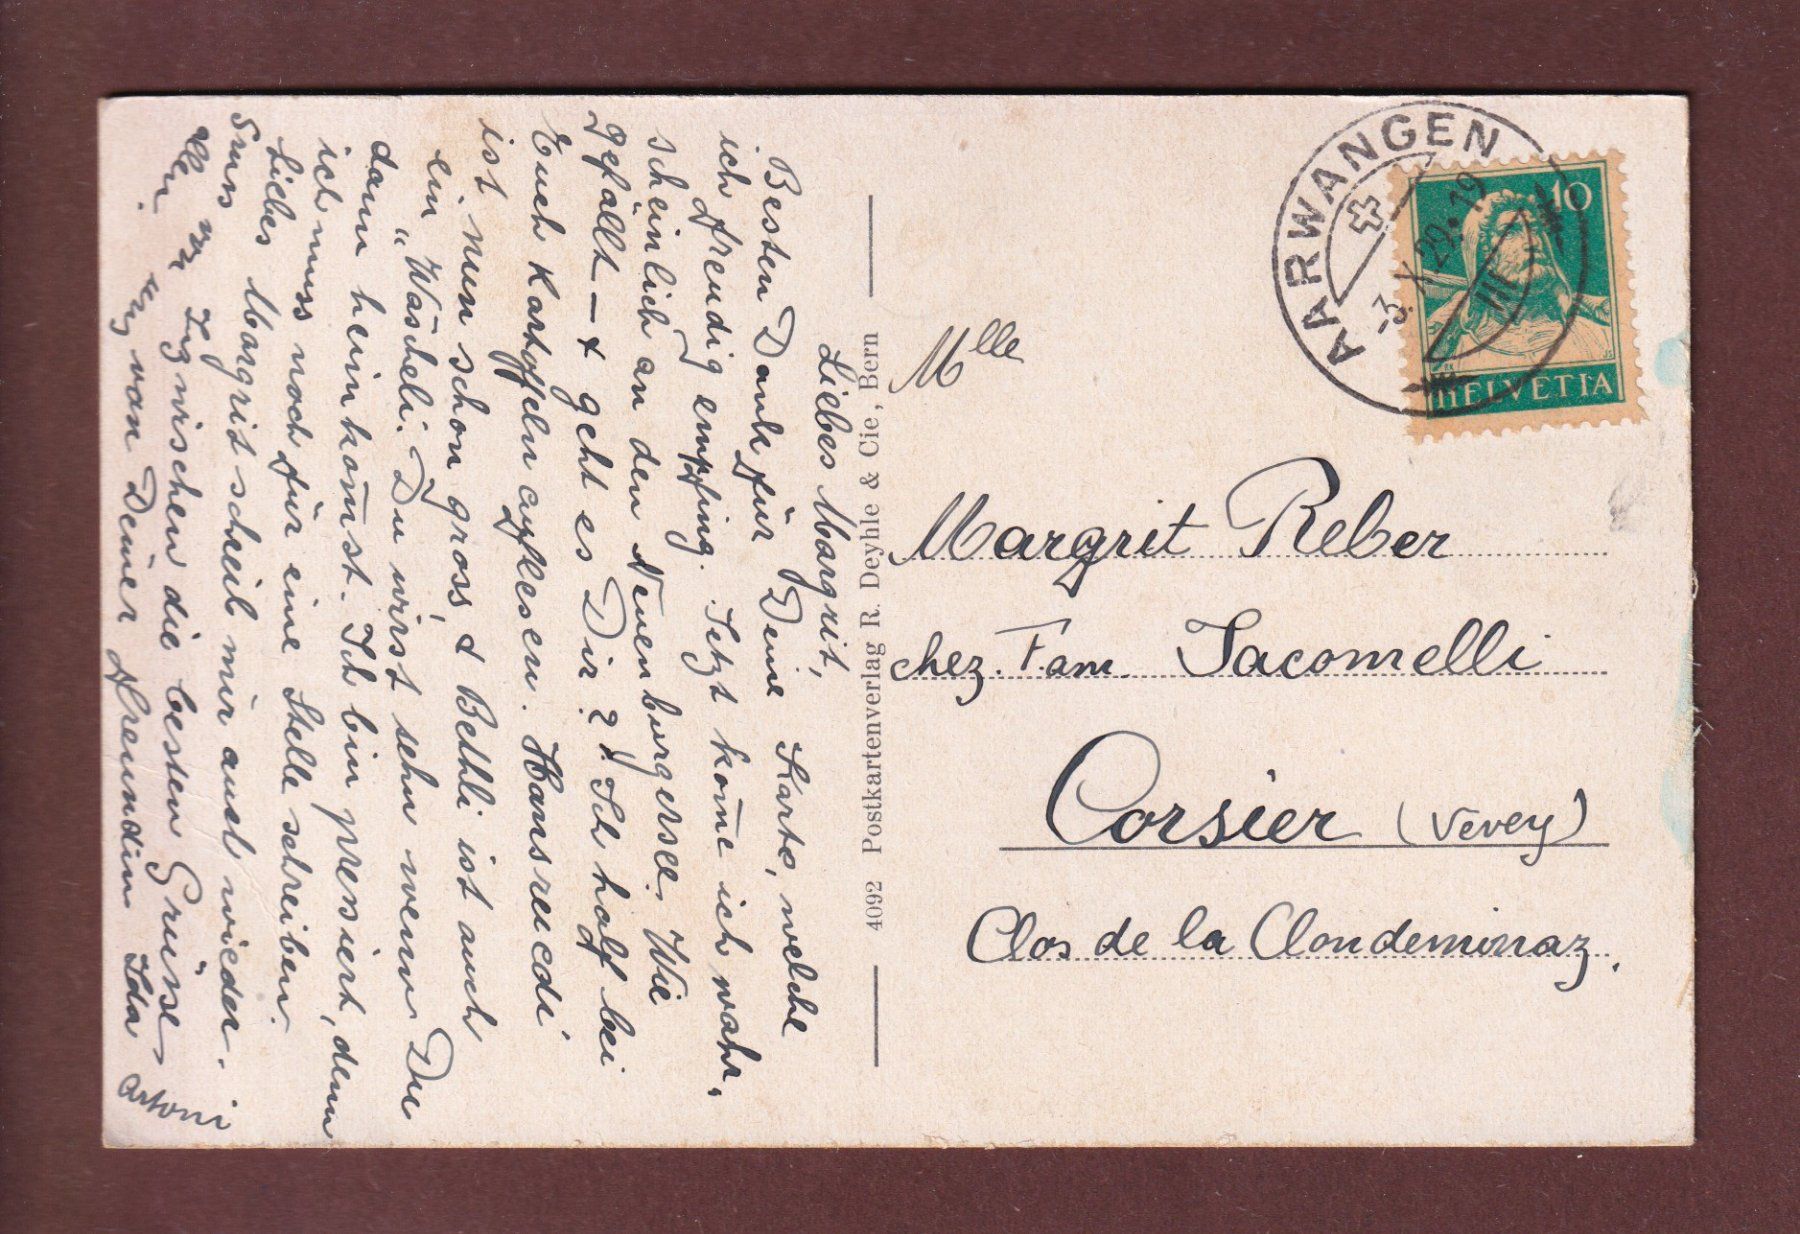 Liebes Margrit,
Besten Dank für Deine Karte, welche
ich freudig empfing. Jetzt kom̄e ich wahr-
scheinlich an den Neuenburgersee. Wie
gefällt – & geht es Dir? Ich half bei
Euch Kartoffeln auflesen. Hansruedi
ist nun schon gross, & Bethli ist auch
ein „Wäscheli. Du wirst sehn wenn Du
dann heimkom̄st. Ich bin pressiert, denn
ich muss noch für eine Stelle schreiben.
Liebes Margrit schreib mir auch wieder.
Inzwischen die besten Grüsse
von Deiner Freundin Ida
4092 Postkartenverlag R. Deyhle & Cie, Bern
AARWANGEN
-3. X. 29. 19
III
10
HELVETIA
Mlle
Margrit Reber
chez. Fam. Jacomelli
Corsier (Vevey)
Clos de la Clondeminaz.